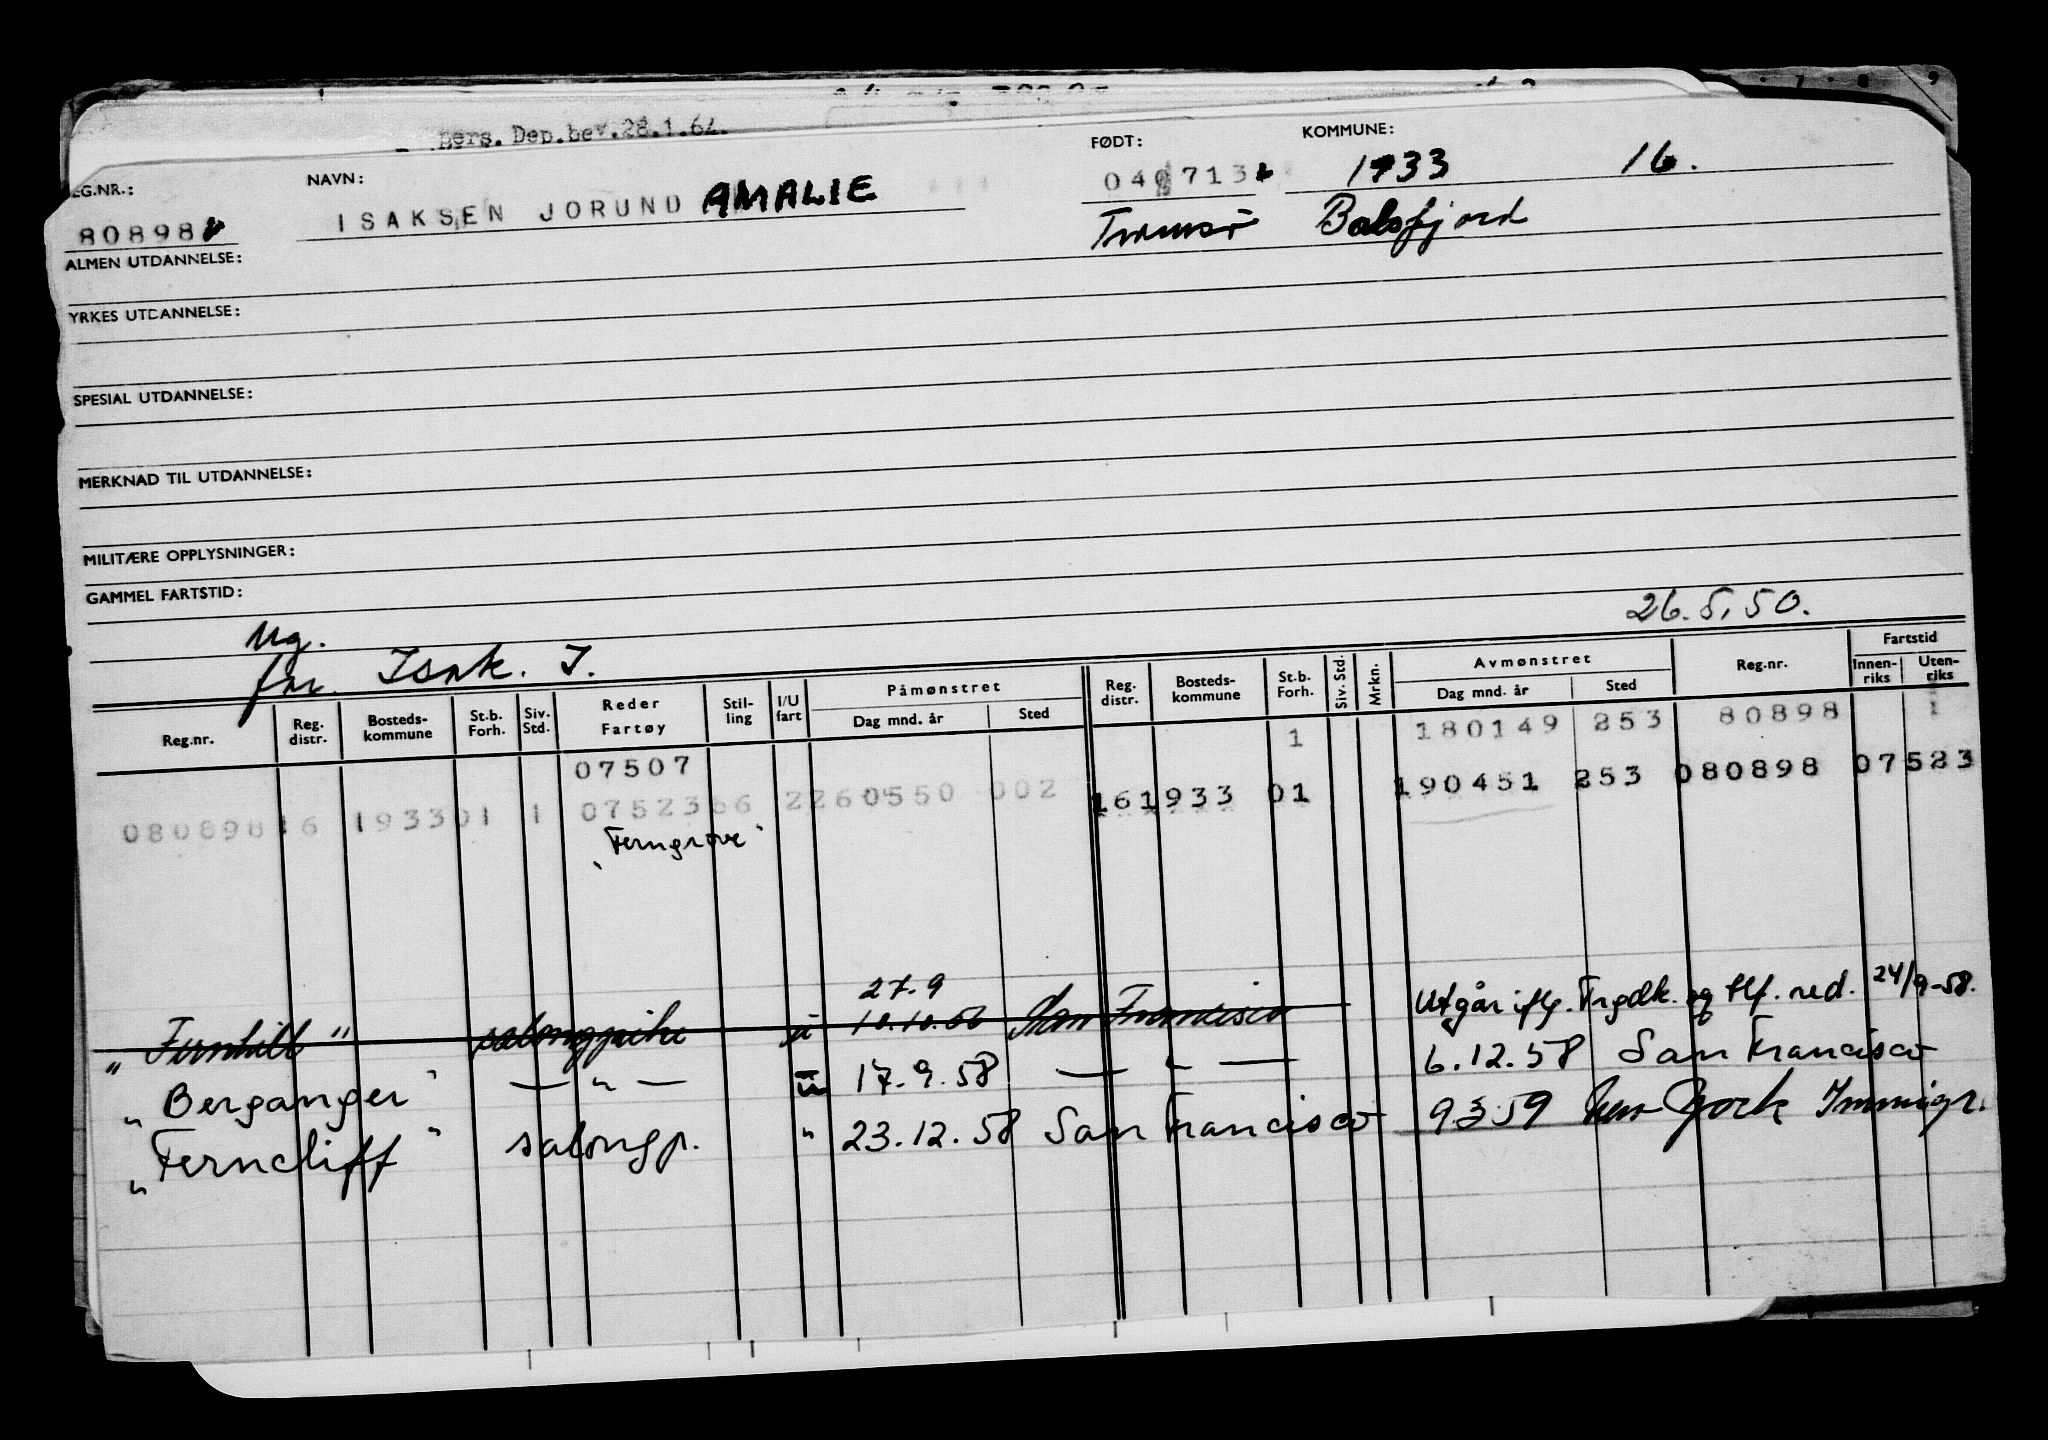 Pers. Dep.bev.28.1.64.
REG.NR.: NAVN: FØDT: KOMMUNE:
80898 ISAKSEN JORUND AMALIE 040713 1933 16.
Tromsø Balsfjord
ALMEN UTDANNELSE:
YRKES UTDANNELSE:
SPESIAL UTDANNELSE:
MERKNAD TIL UTDANNELSE:
MILITÆRE OPPLYSNINGER:
GAMMEL FARTSTID:
26.5.50.
Ug.
far. Isak. I.
Reg.nr. Reg. distr. Bosteds- kommune St.b. Forh. Siv. Std. Reder Fartøy Stil- ling I/U fart Påmønstret Dag mnd. år Sted Reg. distr. Bosteds- kommune St.b. Forh. Siv. Std. Mrkn. Avmønstret Dag mnd. år Sted Reg.nr. Fartstid Innen- riks Uten- riks
07507 1 180149 253 80898 1
080898 16 1933 01 1 07523 66 2 260550 002 16 1933 01 190451 253 080898 07523
"Ferngrove"
27.9
"Fernhill" salongpike u 10.10.56 San Francisco Utgår iflg. Frgdk. og tlf. red. 24/9-58.
"Berganger" — " — u 17.9.58 — " — 6.12.58 San Francisco
"Ferncliff" salongp. " 23.12.58 San Francisco 9 3 59 New York Immigr.